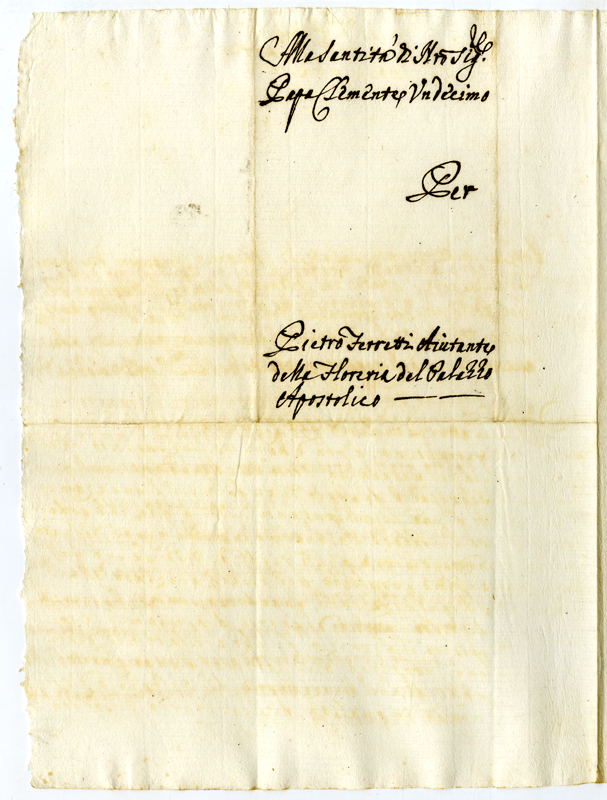 Alla Santità di Nrõ Sig.re
Papa Clemente Undecimo
Per
Pietro Ferretti Aiutante
della Floreria del Palazzo
Apostolico